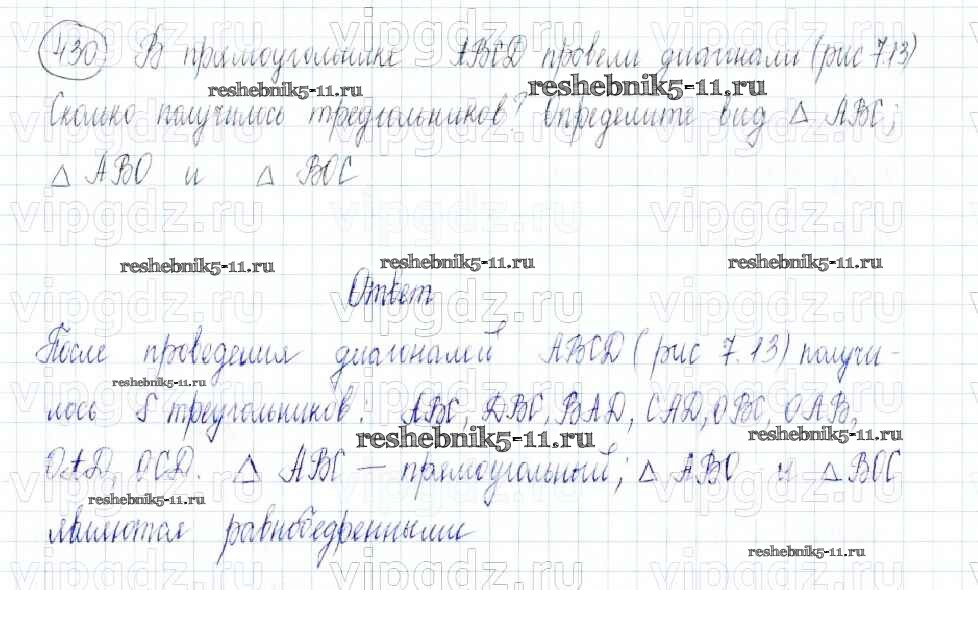 430 В прямоугольнике ABCD провели диагонали (рис 7.13)
Сколько получилось треугольников? Определите вид △ ABC;
△ ABO и △ BOC
Ответ
После проведения диагоналей ABCD (рис 7.13) получи-
лось 8 треугольников: ABC, DBC, BAD, CAD, OBC, OAB,
OAD, OCD. △ ABC — прямоугольный; △ ABO и △ BOC
являются равнобедренными
reshebnik5-11.ru
vipgdz.ru